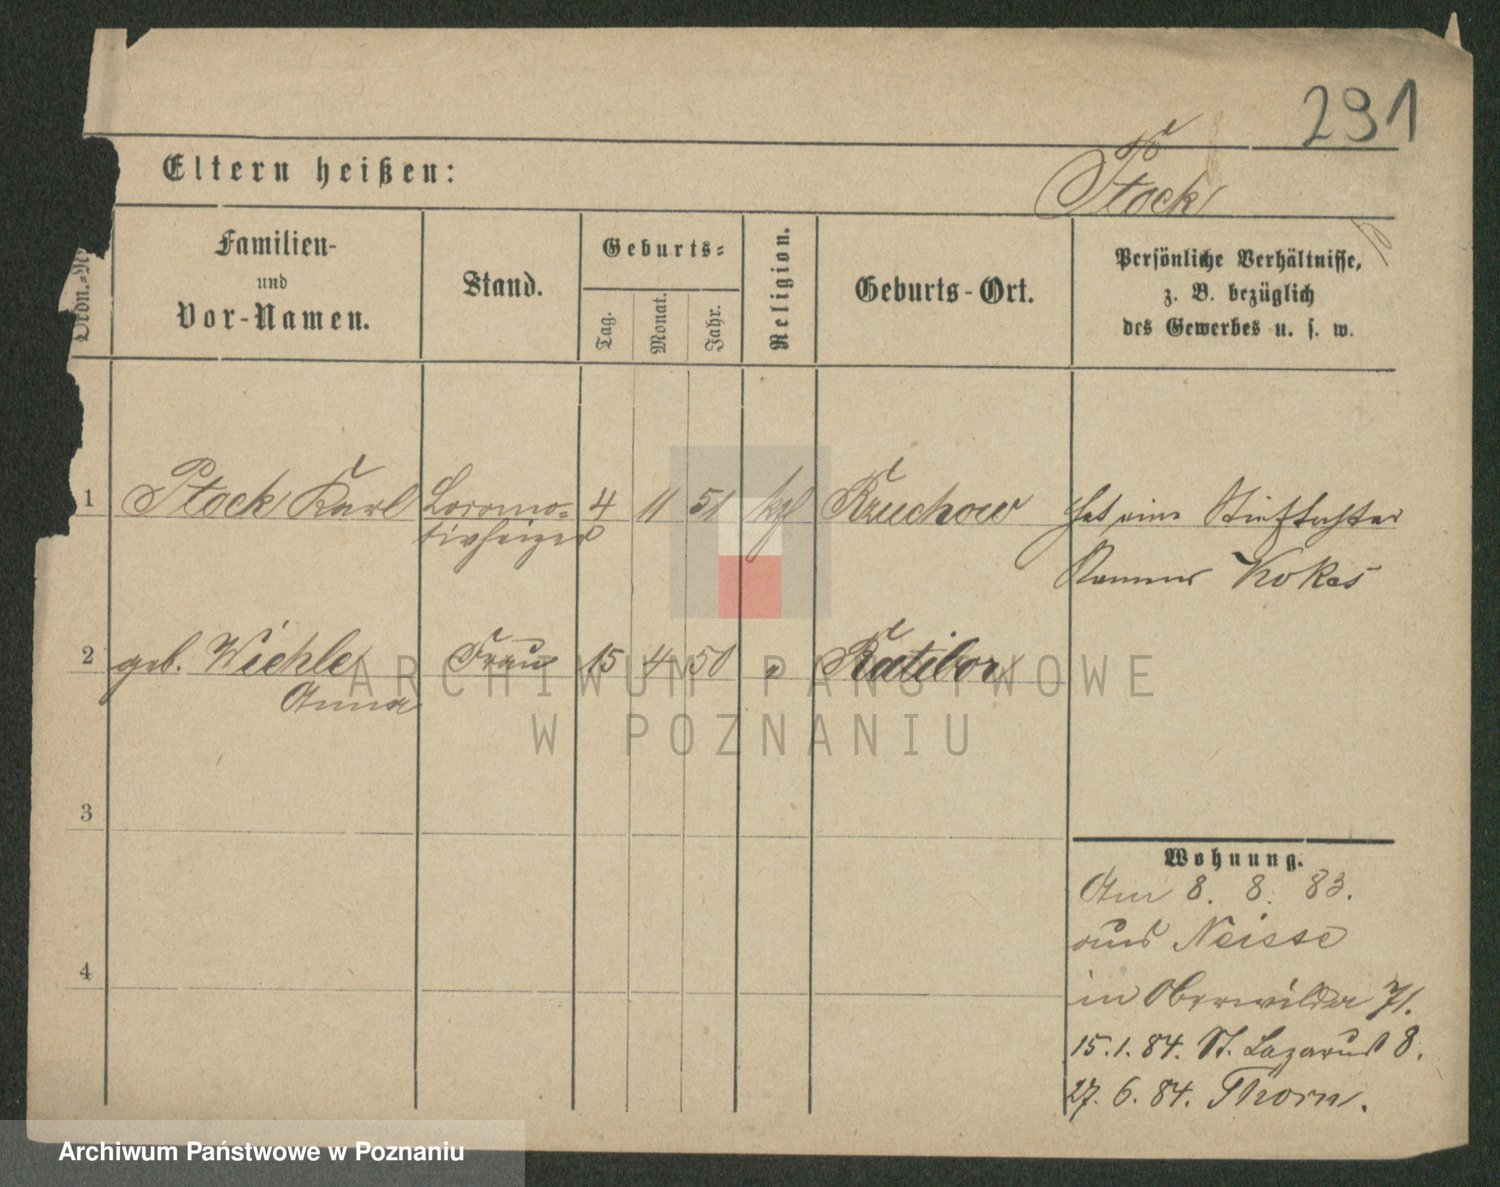 291
Eltern heißen:
Ptock
Ordn.-Nr
Familien-
und
Vor-Namen.
Stand.
Geburts-
Tag.
Monat.
Jahr.
Religion.
Geburts-Ort.
Persönliche Verhältnisse,
z. B. bezüglich
des Gewerbes u. s. w.
1 Ptock Karl Locomo- 4 11 51 kth Rzuchow hat eine Stieftochter
tivheizer
Kokes
2 geb. Wichle Frau 15 4 50 " Ratibor
Anna
3
4
Wohnung.
Am 8. 8. 83.
aus Neisse
in Oberwilda 71.
15.1.84. St. Lazarus 8.
27. 6. 84. Thorn.
ARCHIWUM PAŃSTWOWE
W POZNANIU
Archiwum Państwowe w Poznaniu